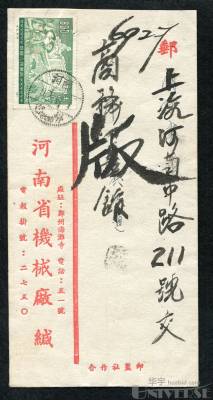 郵
上海河南中路211號交
商務
版
館
河南省機械廠緘
廠址：鄭州海灘寺 電話：五一號
電報掛號：二七五〇
郵盟社作合
华宇 huabid.com
UNIVERSE